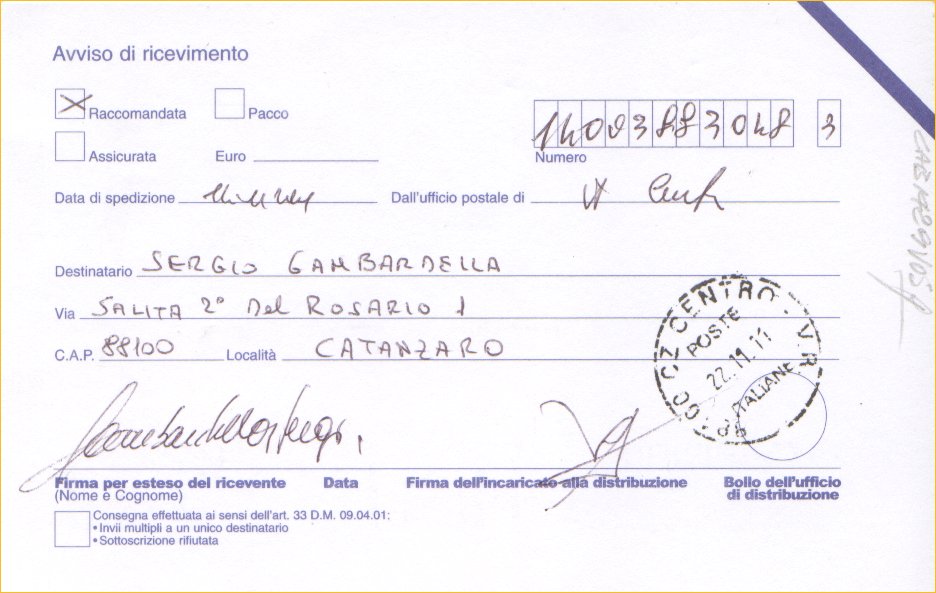 Avviso di ricevimento
Raccomandata Pacco
Assicurata Euro
Numero
Data di spedizione Dall'ufficio postale di
Destinatario SERGIO GAMBARDELLA
Via SALITA 2° Del ROSARIO 1
C.A.P. 88100 Località CATANZARO
88100 CZ CENTRO . V.R.
POSTE
22.11.11
ITALIANE
Firma per esteso del ricevente Data Firma dell'incaricato alla distribuzione Bollo dell'ufficio
(Nome e Cognome) di distribuzione
Consegna effettuata ai sensi dell'art. 33 D.M. 09.04.01:
• Invii multipli a un unico destinatario
• Sottoscrizione rifiutata